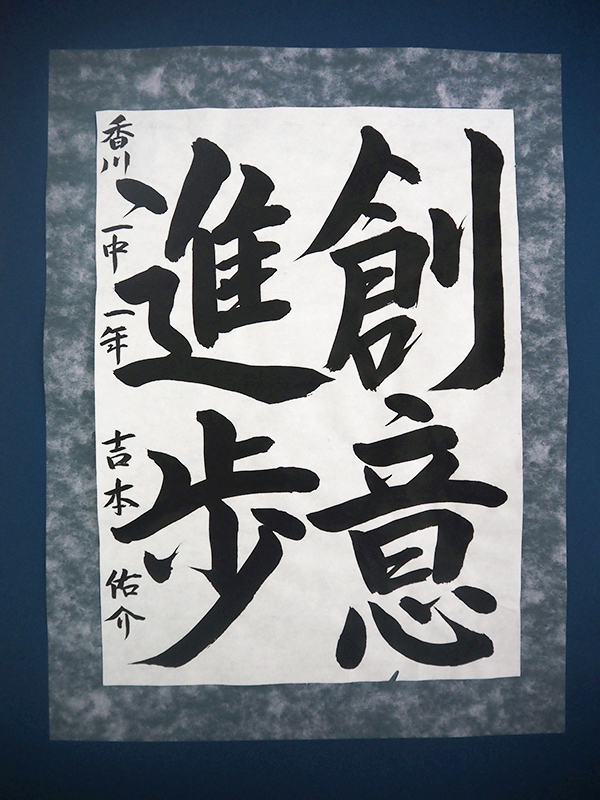 創意
進歩
香川一中一年 吉本佑介